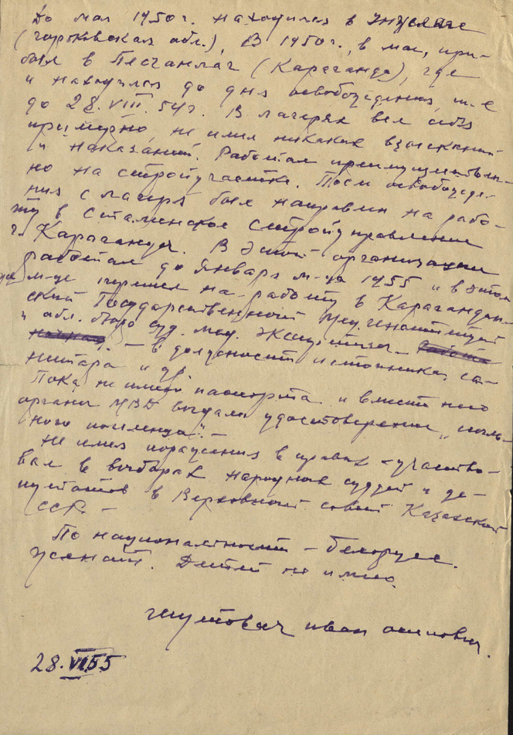 До мая 1950 г. находился в Унжлаге
(Горьковская обл.), В 1950 г., в мае, при-
был в Песчанлаг (Караганда), где
и находился до дня освобождения, т.е
до 28.VIII.54 г. В лагерях вел себя
примерно, не имел никаких взысканий
и наказаний. Работал преимуществен-
но на стройучастке. После освобожде-
ния с лагеря был направлен на рабо-
ту в Сталинское стройуправление
г. Караганда. В этой организации
работал до января м-ца 1955 и в этом
же м-це перешел на работу в Карагандин-
ский Государственный Мединститут
и обл. бюро суд. мед. экспертизы
– в должности истопника, са-
нитара и др.
Пока не имею паспорта и вместо него
органы МВД выдали удостоверение „ссыль-
ного поселенца".–
Не имел поражения в правах – участво-
вал в выборах народных судей и де-
путатов в Верховный совет Казахской
ССР. –
По национальности – белорус.
Женат. Детей не имею.
Иван Осипович.
28.VI.55